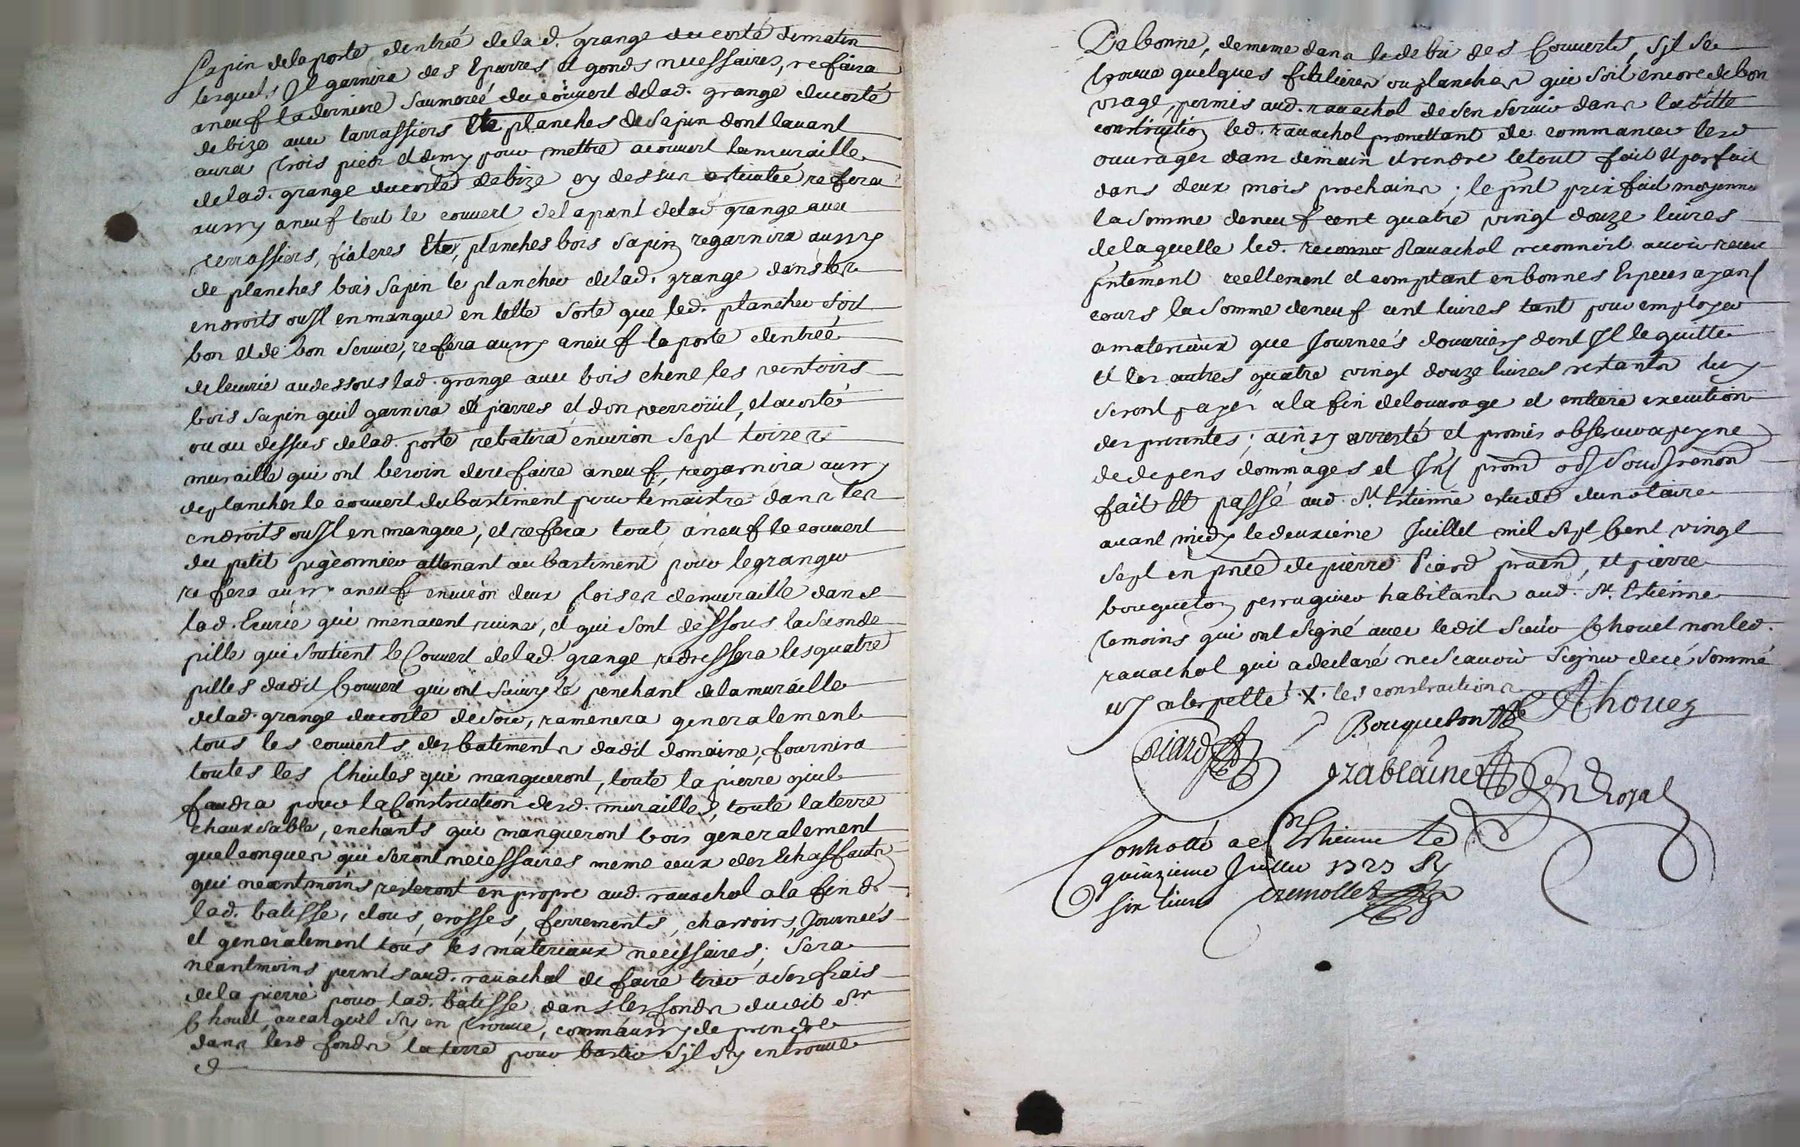 sapin dela porte dentreé delad. grange du costé dematin
lesquels Jl garnira des Eparres et gonds necessaires, refaira
aneuf la derniere du couvert delad. grange du costé
debize avec tarrassiers Eta planches de sapin dont lavant
aura trois pieds et demy pour mettre acouvert la muraille
delad. grange du costé debize cy dessus refera
aussy aneuf tout le couvert delapant delad grange avec
terrassiers, planches bois sapin regarnira aussy
de planches bois sapin le plancher delad. grange dans les
endroits ousJl en manque en telle sorte que led. plancher soit
bon et de bon service, refera aussy aneuf la porte dentreé
deleurie audessous lad. grange avec bois chene les ventoirs
bois sapin quil garnira et dun verroüil, et acosté
ou au dessus delad. porte rebatira environ sept toizes
muraille qui ont besoin derefaire aneuf, regarnira aussy
deplanches le couvert du bastiment pour le maistre dans les
endroits ousJl en manque, et refera tout aneuf le couvert
du petit pigeonnier attenant au bastiment pour le granger
refera aussy aneuf environ deux toises demuraille dans
lad. Ecurie qui menacent ruine, et qui sont dessous la seconde
pille qui soutient le Couvert delad. grange redressera les quatre
pilles dudit Couvert qui ont suivy le penchant dela muraille
delad. grange du costé desoir, ramenera generalement
tous les couverts des batiments dudit domaine, fournira
toutes les thiules qui manqueront, toute la pierre quil
faudra pour la Construction desd. murailles, toute la terre
chaux sable, enchants qui manqueront bois generalement
quelconques qui seront necessaires meme ceux des Echaffauts
qui neantmoins resteront en propre aud. ravachol ala fin de
lad. batisse, clous, crosses, ferrements, charrois, Journeés
et generalement tous les materiaux necessaires; sera
neantmoins permis aud. ravachol de faire tirer ases frais
dela pierre pour lad. batisse dans les fonds dudit Sr
Chouet aucas quil sy en trouve, comm'aussy de prendre
dans lesd fonds la terre pour bastir sjl sy en trouve
de
De bonne, dememe dans le debri des Couverts, sjl se
trouve quelques filieres ou planches qui soit encore de bon
usage, permis aud. ravachol de sen servir dans lad.
construction led. ravachol promettant de commancer lesd
ouvrages dans demain et rendre letout fait et parfait
dans deux mois prochains; le pnt prix fait moyennt
la somme deneuf cent quatre vingt douze livres
delaquelle led. Ravachol reconnoit avoir receu
pntement reellement et comptant en bonnes Especes ayant
cours la somme deneuf cent livres tant pour employer
a materiaux que Journeés douvriers dont Jl le quitte
et les autres quatre vingt douze livres restants luy
seront payés ala fin delouvrage et entiere execution
des presentes; ainsy arresté et promis observer apeyne
de depens dommages et
fait et passé aud. St. Estienne estude du notaire
avant midy le deuxieme Juillet mil sept Cent vingt
sept en pnce de pierre Picard praen, et pierre
bouqueton perruquier habitants aud. St. Estienne
temoins qui ont signé avec ledit Sieur Chouet non led.
ravachol qui a declaré ne scavoir signer decé sommé
X. les constructions
Picard Bouqueton Ahouet
not Royal
Controllé a St Estienne le
quinzieme Juillet 1727 Rç
six livres